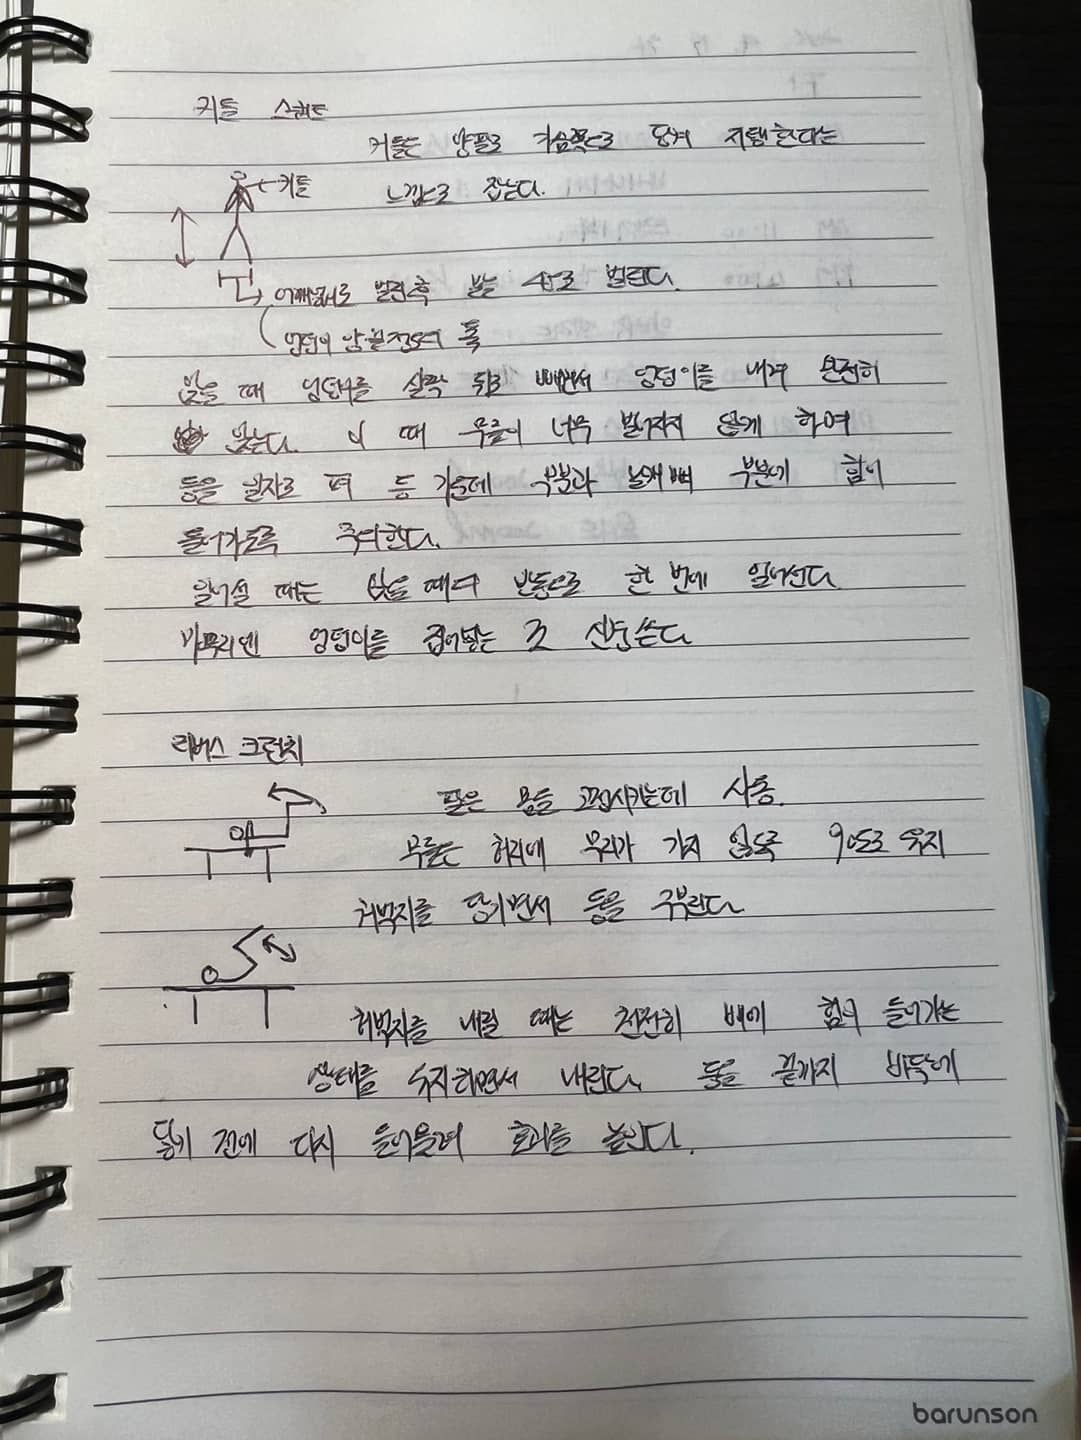 커틀 스쿼트
커틀은 양팔로 가슴쪽으로 당겨 지탱한다는
커틀
느낌으로 잡는다.
어깨넓이로 벌린 후 발을 살짝 벌린다.
엉덩이 앉을 정도의 폭
앉을 때 엉덩이를 살짝 뒤로 빼면서 엉덩이를 내려 온전히
앉는다. 이 때 무릎이 너무 벌어지지 않게 하여
등을 일자로 펴 등 가운데 부분과 날개뼈 부분에 힘이
들어가도록 주의한다.
일어설 때는 앉을 때의 반동으로 한 번에 일어선다
마무리엔 엉덩이를 집어넣는 것 신경쓴다
리버스 크런치
팔은 몸을 고정시키는데 사용.
무릎은 허리에 무리가 가지 않도록 90도로 유지
허벅지를 당기면서 등을 구부린다
허벅지를 내릴 때는 천천히 배에 힘이 들어가는
상태를 유지하면서 내린다. 등을 끝까지 바닥에
닿기 전에 다시 들어올려 효과를 높인다.
barunson